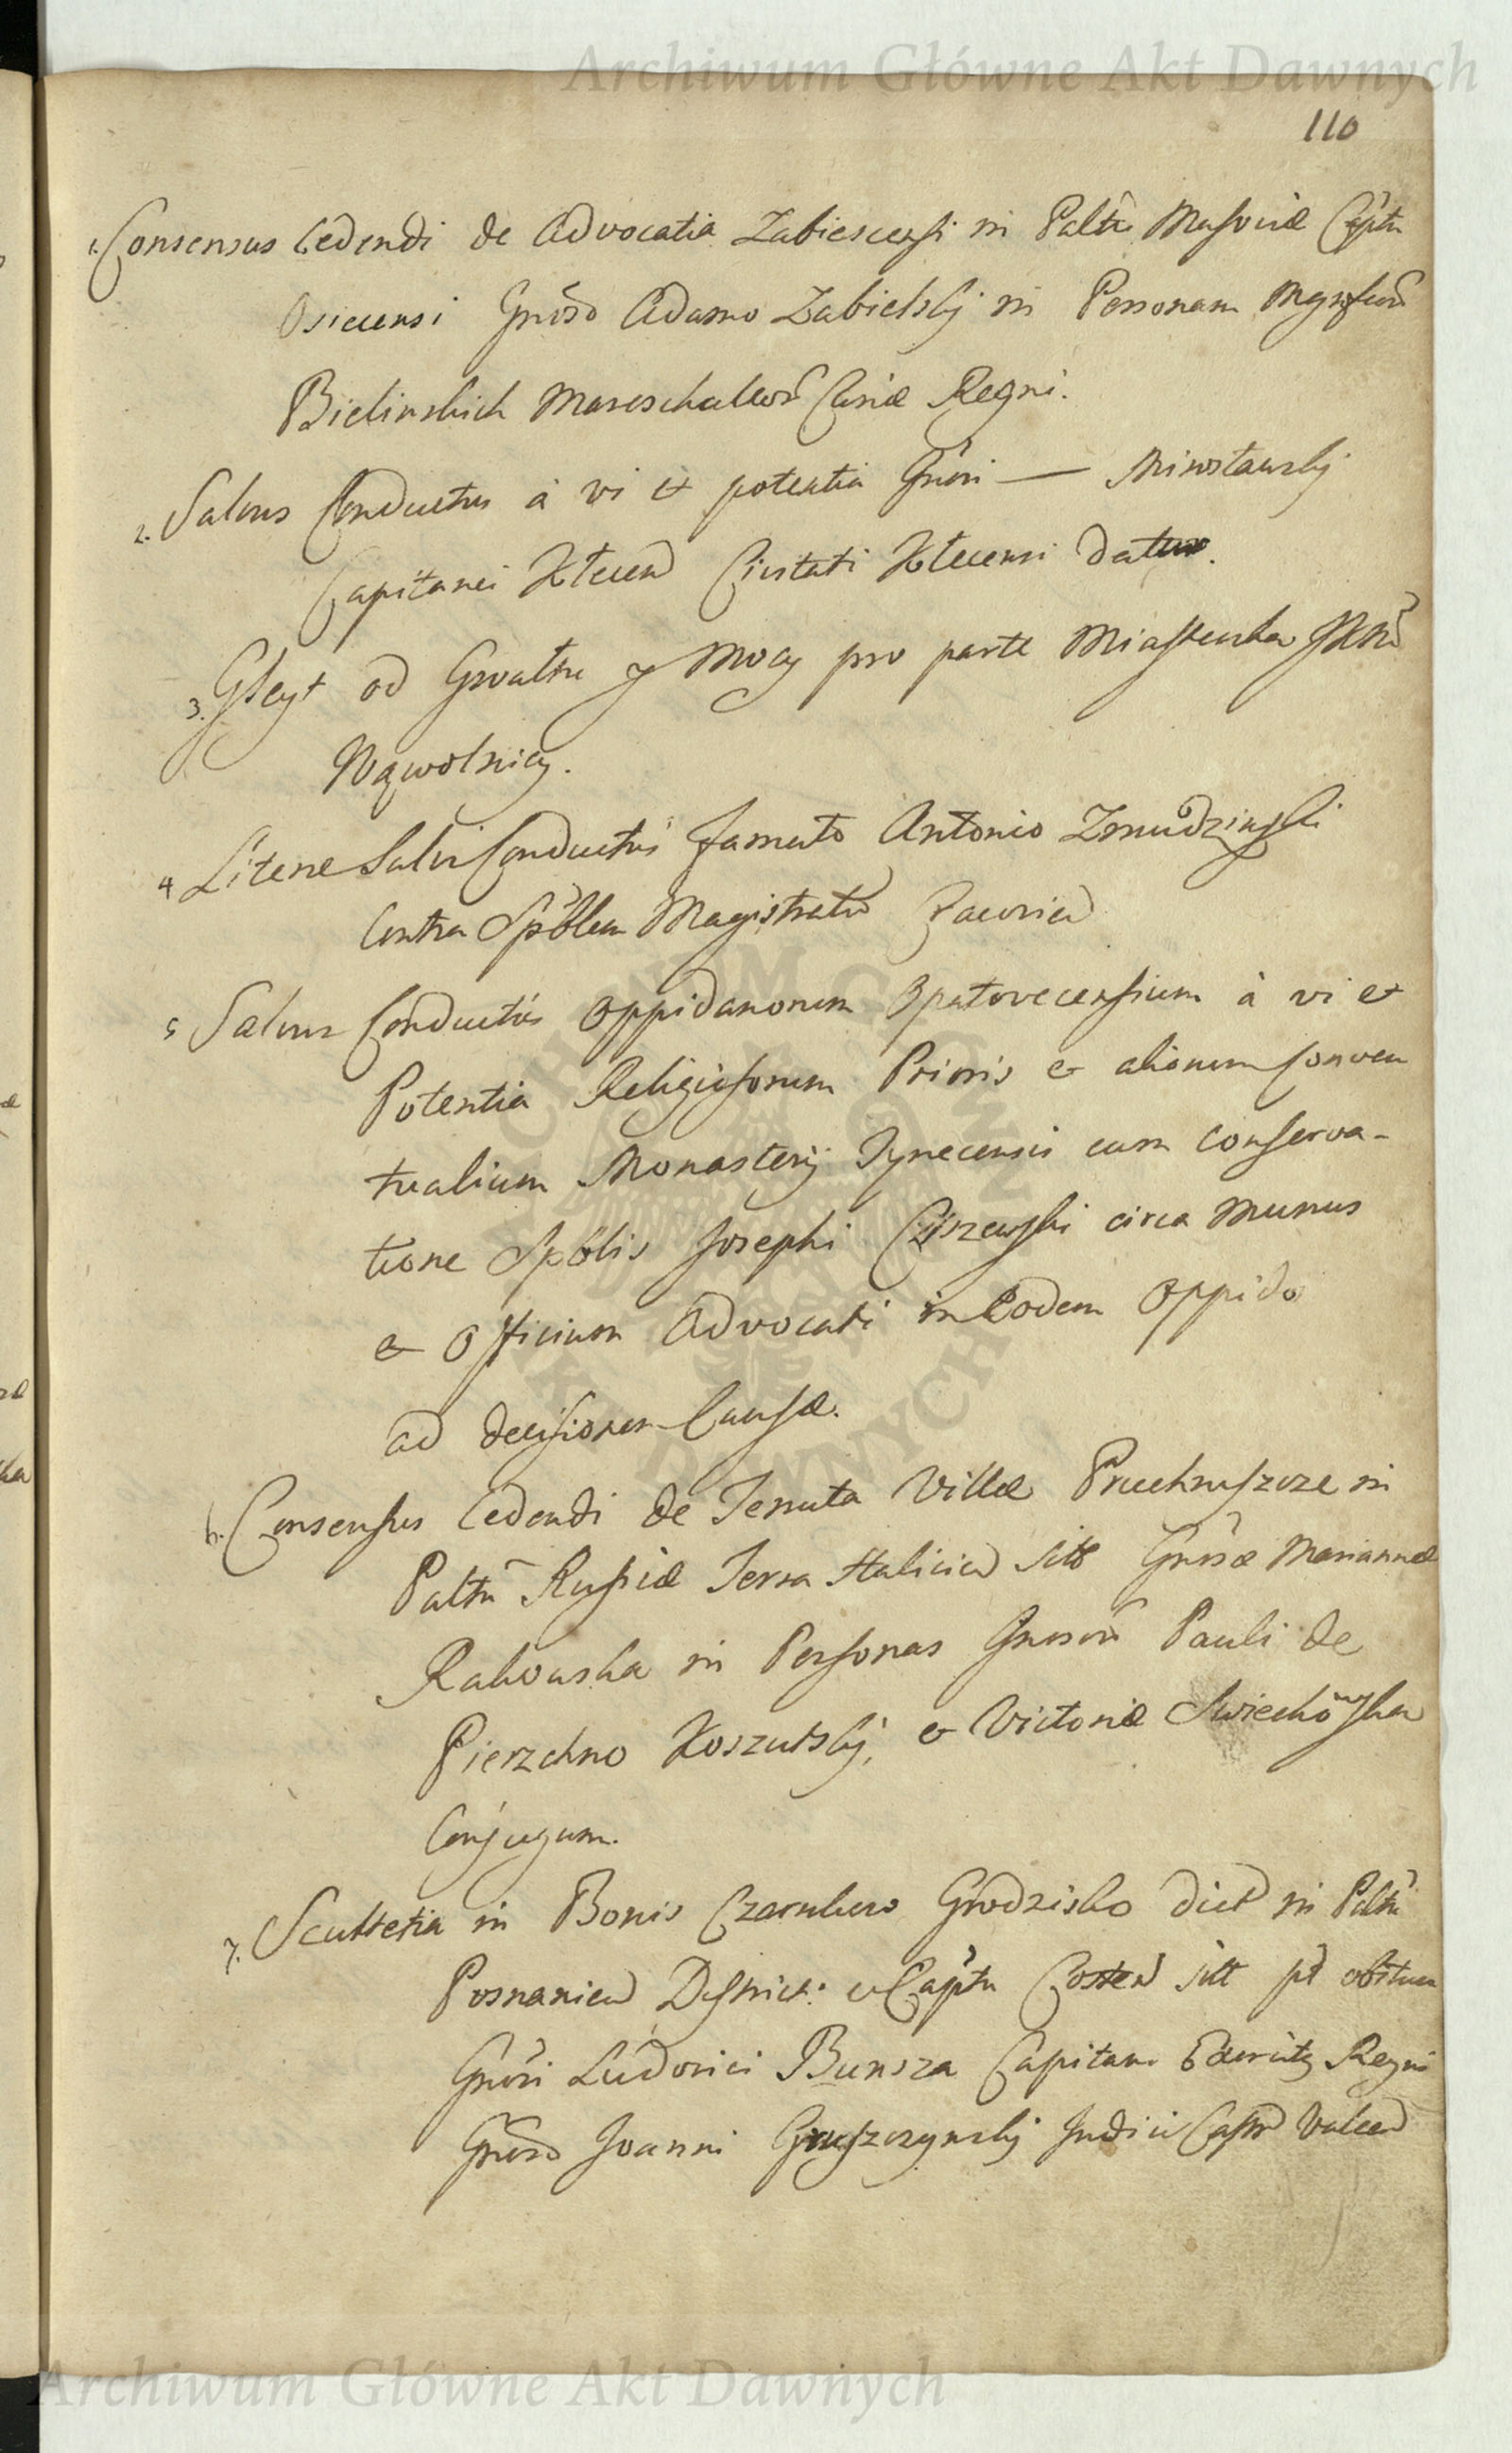 Archiwum Główne Akt Dawnych
110
1. Consensus Cedendi de Advocatia Zabiescensi in Paltu Masoviæ Capitu
Osiecensi Gnoso Adamo Zabielskij in Personam Mgnificor
Bielinskich Mareschalcor Curiæ Regni.
2. Salvus Conductus à vi et potentia Gnosi — Miroslawskij
Capitanei Klecen Civitati Klecensi datur.
3. Gleyt od Gwałtu y Mocy pro parte Miasteczka JKM
Wąwolnicy.
4 Literæ Salvi Conductus famato Antonio Zmudzinski
Contra Spblem Magistratu
5 Salvus Conductus Oppidanorum Opatovecensium à vi et
Potentia Religiosorum Prioris et aliorum Conven
tualium Monasterij Tynecensis cum Conserva-
tione Spblis Josephi Ciszewski circa Munus
et Officium Advocati in Eodem Oppido
ad decisionem Causæ.
6. Consensus Cedendi de Tenuta Villæ in
Paltu Russiæ Terra Halicien sitæ Gnosæ Mariannæ
Rakowska in Personas Gnosor Pauli de
Pierzchno Koszutskij, et Victoriæ Swiechowska
Conjugum.
7. Scultetia in Bonis Czarnkowo Grodzisko dict in Paltu
Posnanien District: et Captu Costen sitt pt obitum
Gnosi Ludovici Bunsza Capitan Exercitg Regni
Gnoso Joanni Gruszczynskij Judici Castr Valcen
Archiwum Główne Akt Dawnych